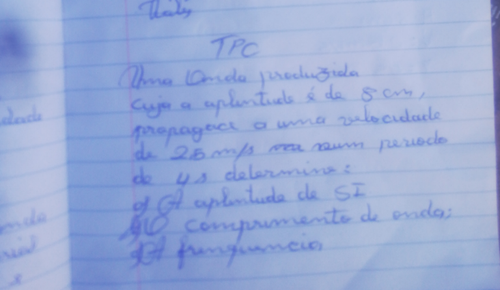 TPC
Uma Onda produzida
cuja a aplintude é de 5 cm,
propagace a uma velocidade
de 25 m/s num periodo
de 4s determine:
a) A aplintude de SI
b) O comprimento de onda;
c) A frenquuncia